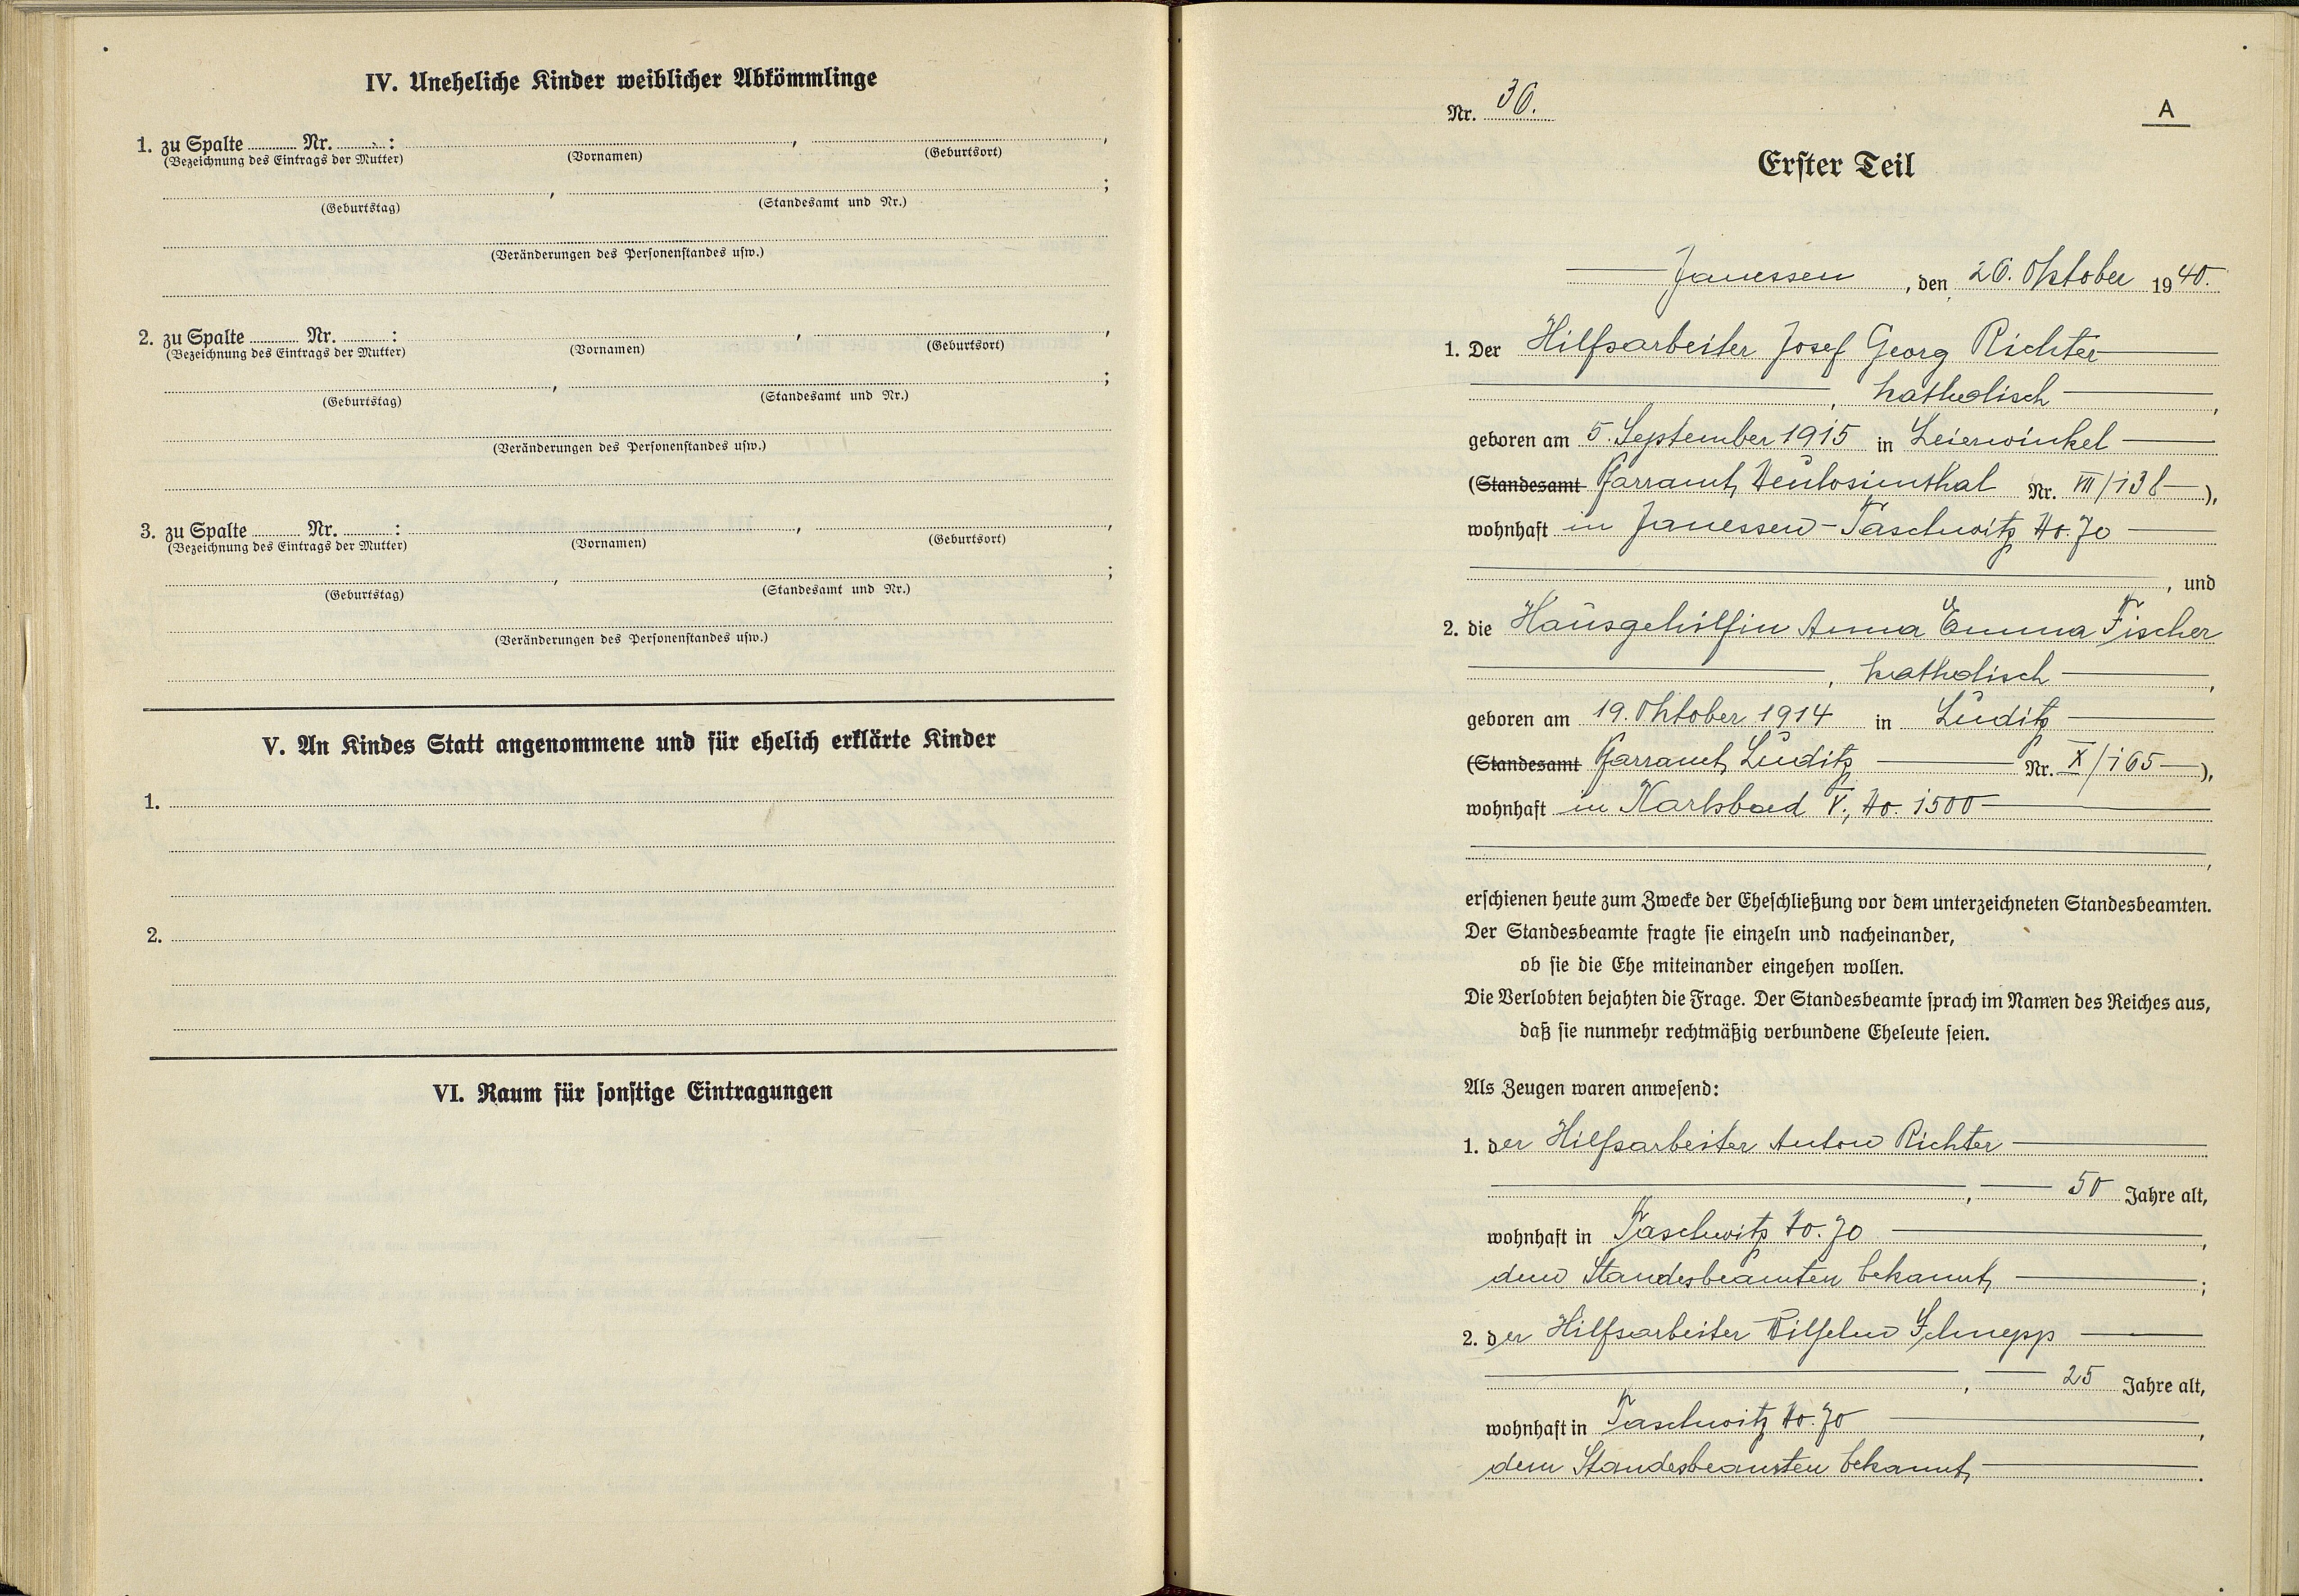 IV. Uneheliche Kinder weiblicher Abkömmlinge
1. zu Spalte ........ Nr. ........ :
(Bezeichnung des Eintrags der Mutter) (Vornamen) (Geburtsort)
(Geburtstag) (Standesamt und Nr.)
(Veränderungen des Personenstandes usw.)
2. zu Spalte ........ Nr. ........ :
(Bezeichnung des Eintrags der Mutter) (Vornamen) (Geburtsort)
(Geburtstag) (Standesamt und Nr.)
(Veränderungen des Personenstandes usw.)
3. zu Spalte ........ Nr. ........ :
(Bezeichnung des Eintrags der Mutter) (Vornamen) (Geburtsort)
(Geburtstag) (Standesamt und Nr.)
(Veränderungen des Personenstandes usw.)
V. An Kindes Statt angenommene und für ehelich erklärte Kinder
1.
2.
VI. Raum für sonstige Eintragungen
Nr. 36.
A
Erster Teil
Janessen, den 26. Oktober 1940.
1. Der Hilfsarbeiter Josef Georg Richter
, katholisch,
geboren am 5. September 1915 in Leierwinkel
(Standesamt Pfarramt Neulosimthal Nr. VII/138),
wohnhaft in Janessen-Taschwitz No. 70
, und
2. die Hausgehilfin Anna Emma Fischer
, katholisch,
geboren am 19. Oktober 1914 in Luditz
(Standesamt Pfarramt Luditz Nr. X/165),
wohnhaft in Karlsbad V., No. 1500
,
erschienen heute zum Zwecke der Eheschließung vor dem unterzeichneten Standesbeamten.
Der Standesbeamte fragte sie einzeln und nacheinander,
ob sie die Ehe miteinander eingehen wollen.
Die Verlobten bejahten die Frage. Der Standesbeamte sprach im Namen des Reiches aus,
daß sie nunmehr rechtmäßig verbundene Eheleute seien.
Als Zeugen waren anwesend:
1. der Hilfsarbeiter Anton Richter
, 50 Jahre alt,
wohnhaft in Taschwitz No. 70,
dem Standesbeamten bekannt;
2. der Hilfsarbeiter Wilhelm Schnepp
, 25 Jahre alt,
wohnhaft in Taschwitz No. 70,
dem Standesbeamten bekannt.